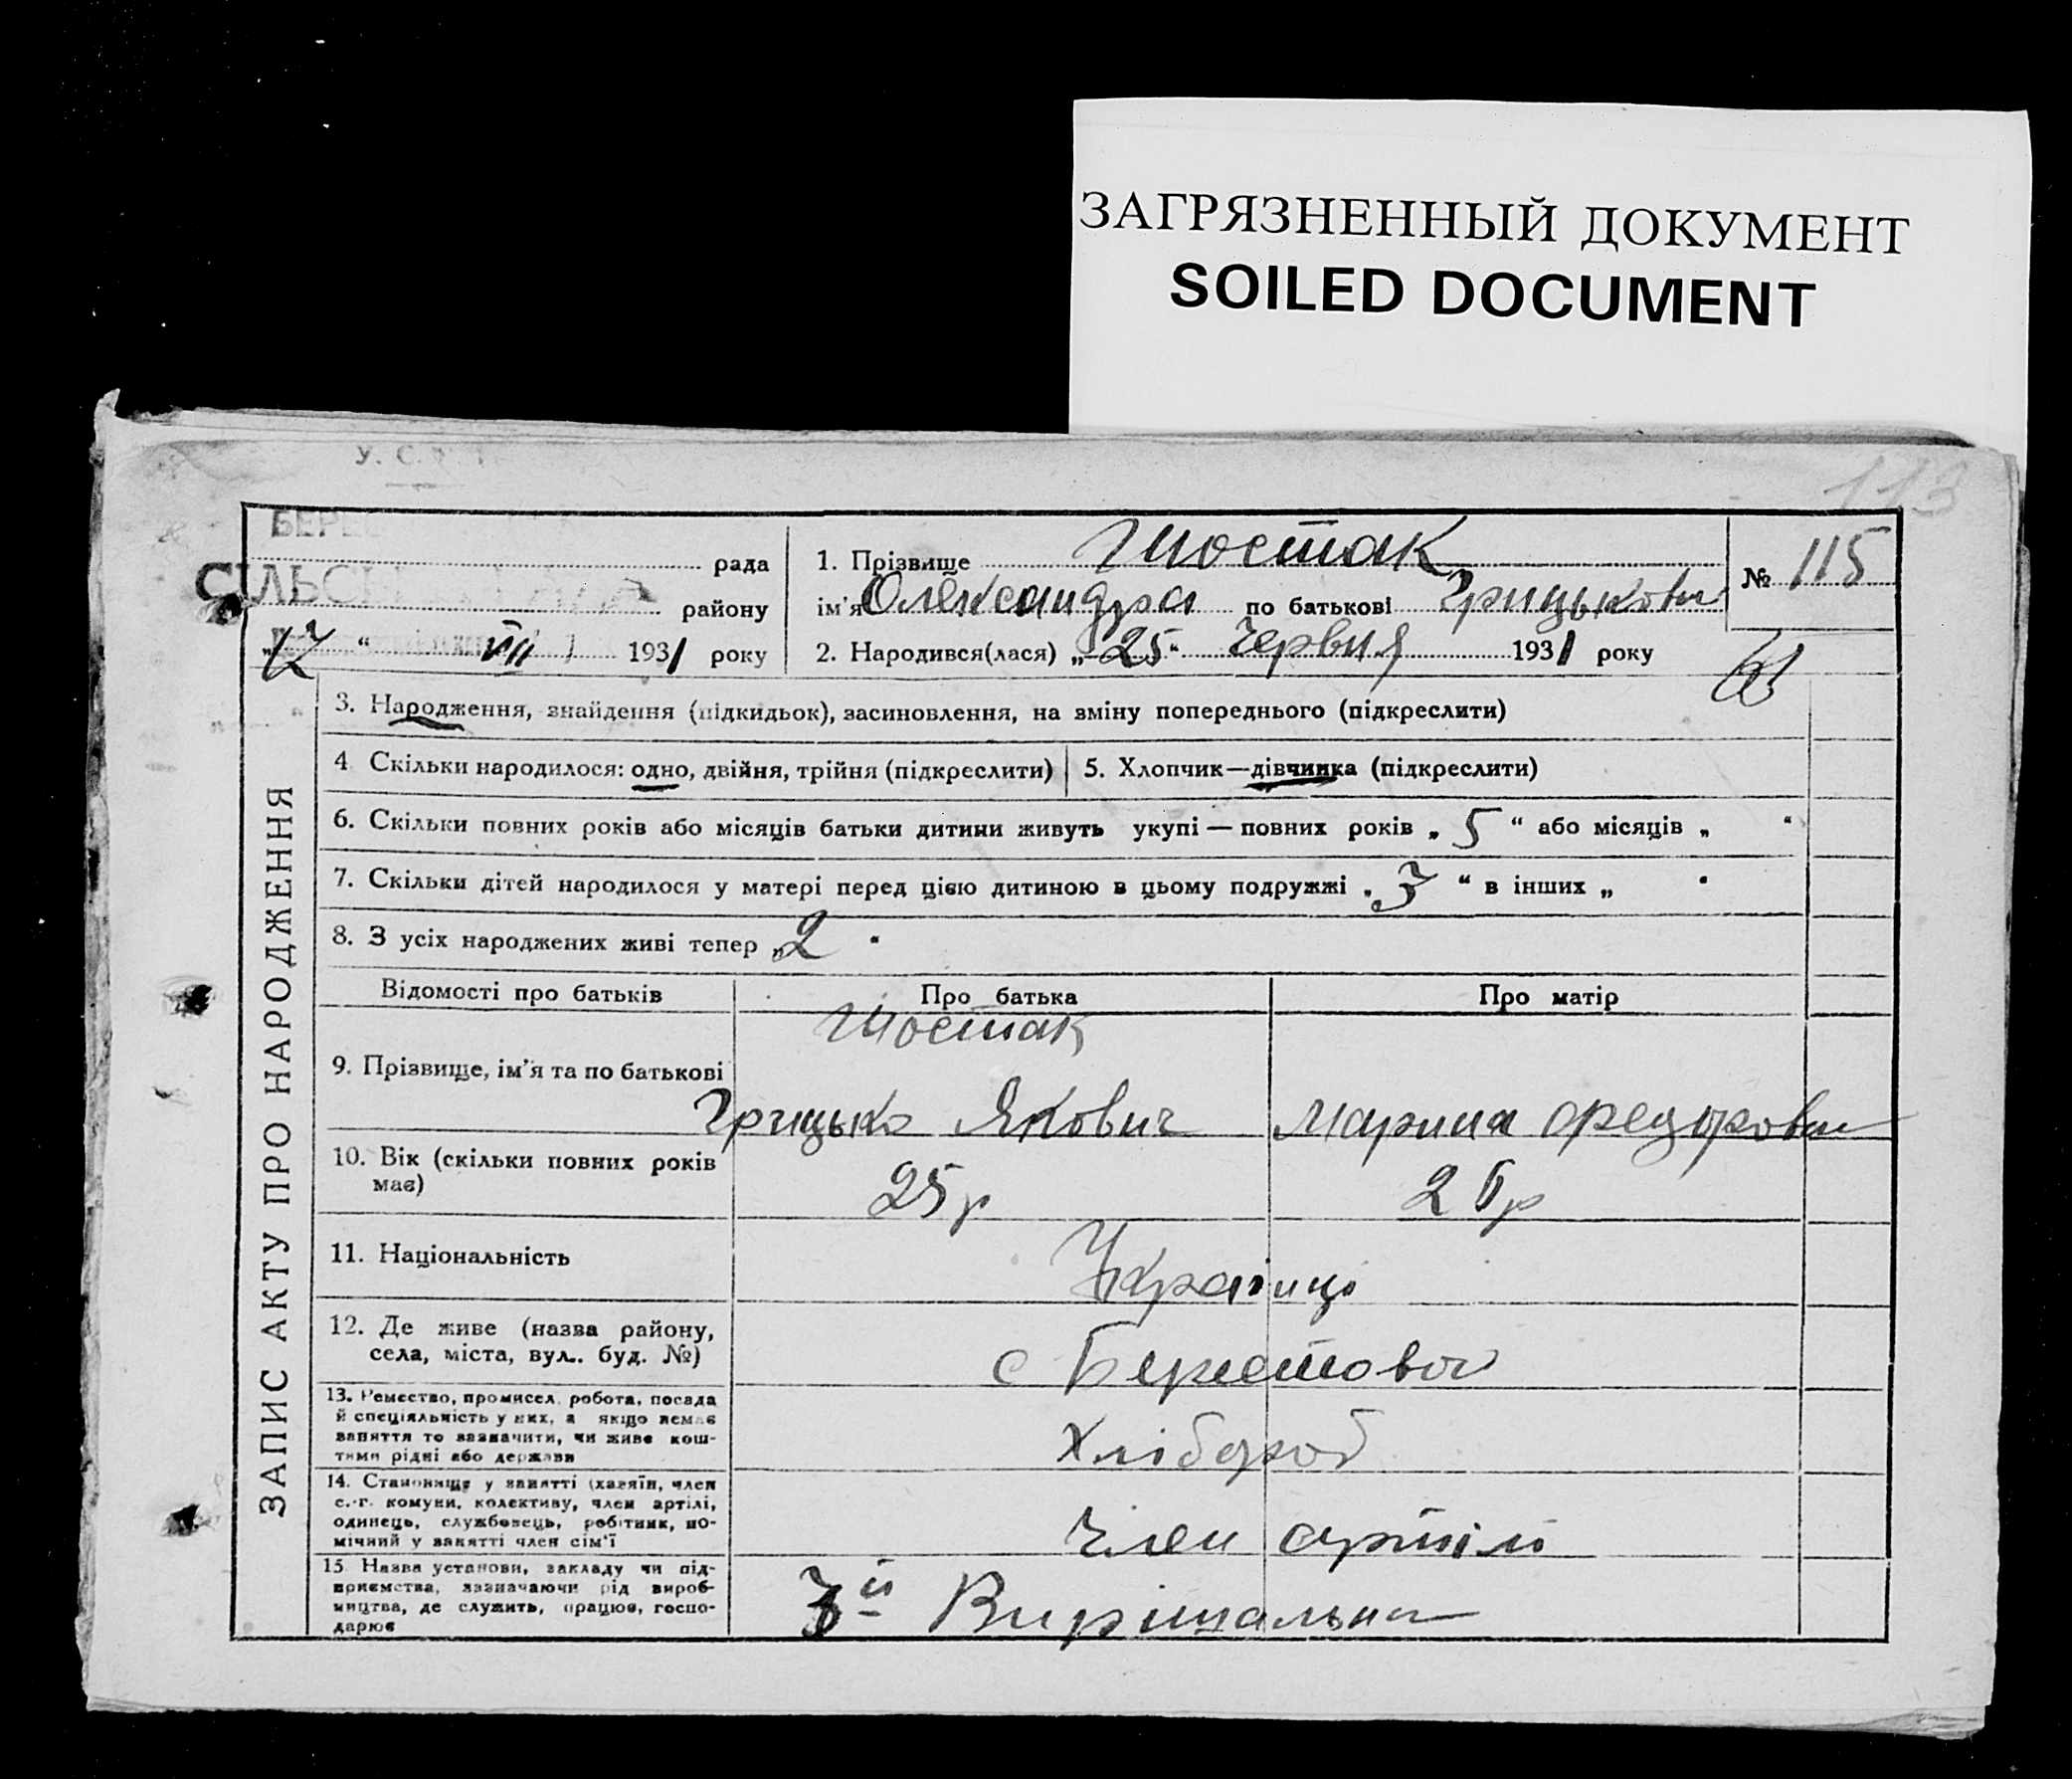 ЗАГРЯЗНЕННЫЙ ДОКУМЕНТ
SOILED DOCUMENT
У. С.
113
БЕРЕ
рада
СІЛЬС
району
VII 1931 року
1. Прізвище Шостак
ім'я Олександра по батькові Грицькова
2. Народився(лася) „25" Червня 1931 року
№ 115
ЗАПИС АКТУ ПРО НАРОДЖЕННЯ
3. Народження, знайдення (підкидьок), засиновлення, на зміну попереднього (підкреслити)
4 Скільки народилося: одно, двійня, трійня (підкреслити) 5. Хлопчик—дівчинка (підкреслити)
6. Скільки повних років або місяців батьки дитини живуть укупі — повних років „ 5 " або місяців „ "
7. Скільки дітей народилося у матері перед цією дитиною в цьому подружжі „ 3 " в інших „ "
8. З усіх народжених живі тепер „2 "
Відомості про батьків Про батька Про матір
Шостак
9. Прізвище, ім'я та по батькові
Грицько Якович Марина Федоровна
10. Вік (скільки повних років
має) 25 р 26 р
11. Національність Українці
12. Де живе (назва району,
села, міста, вул. буд. №) с Берестовая
13. Ремество, промисел, робота, посада
й спеціяльність у них, а якщо немає
заняття то зазначити, чи живе кош-
тами рідні або держави
Хлібороб
14. Становище у занятті (хазяїн, член
с.-г. комуни, колективу, член артілі,
одинець, службовець, робітник, по-
мічний у занятті член сім'ї
Член артілі
15 Назва установи, закладу чи під-
приємства, зазначаючи рід вироб-
ництва, де служить, працює, госпо-
дарює
3й Вирішальна